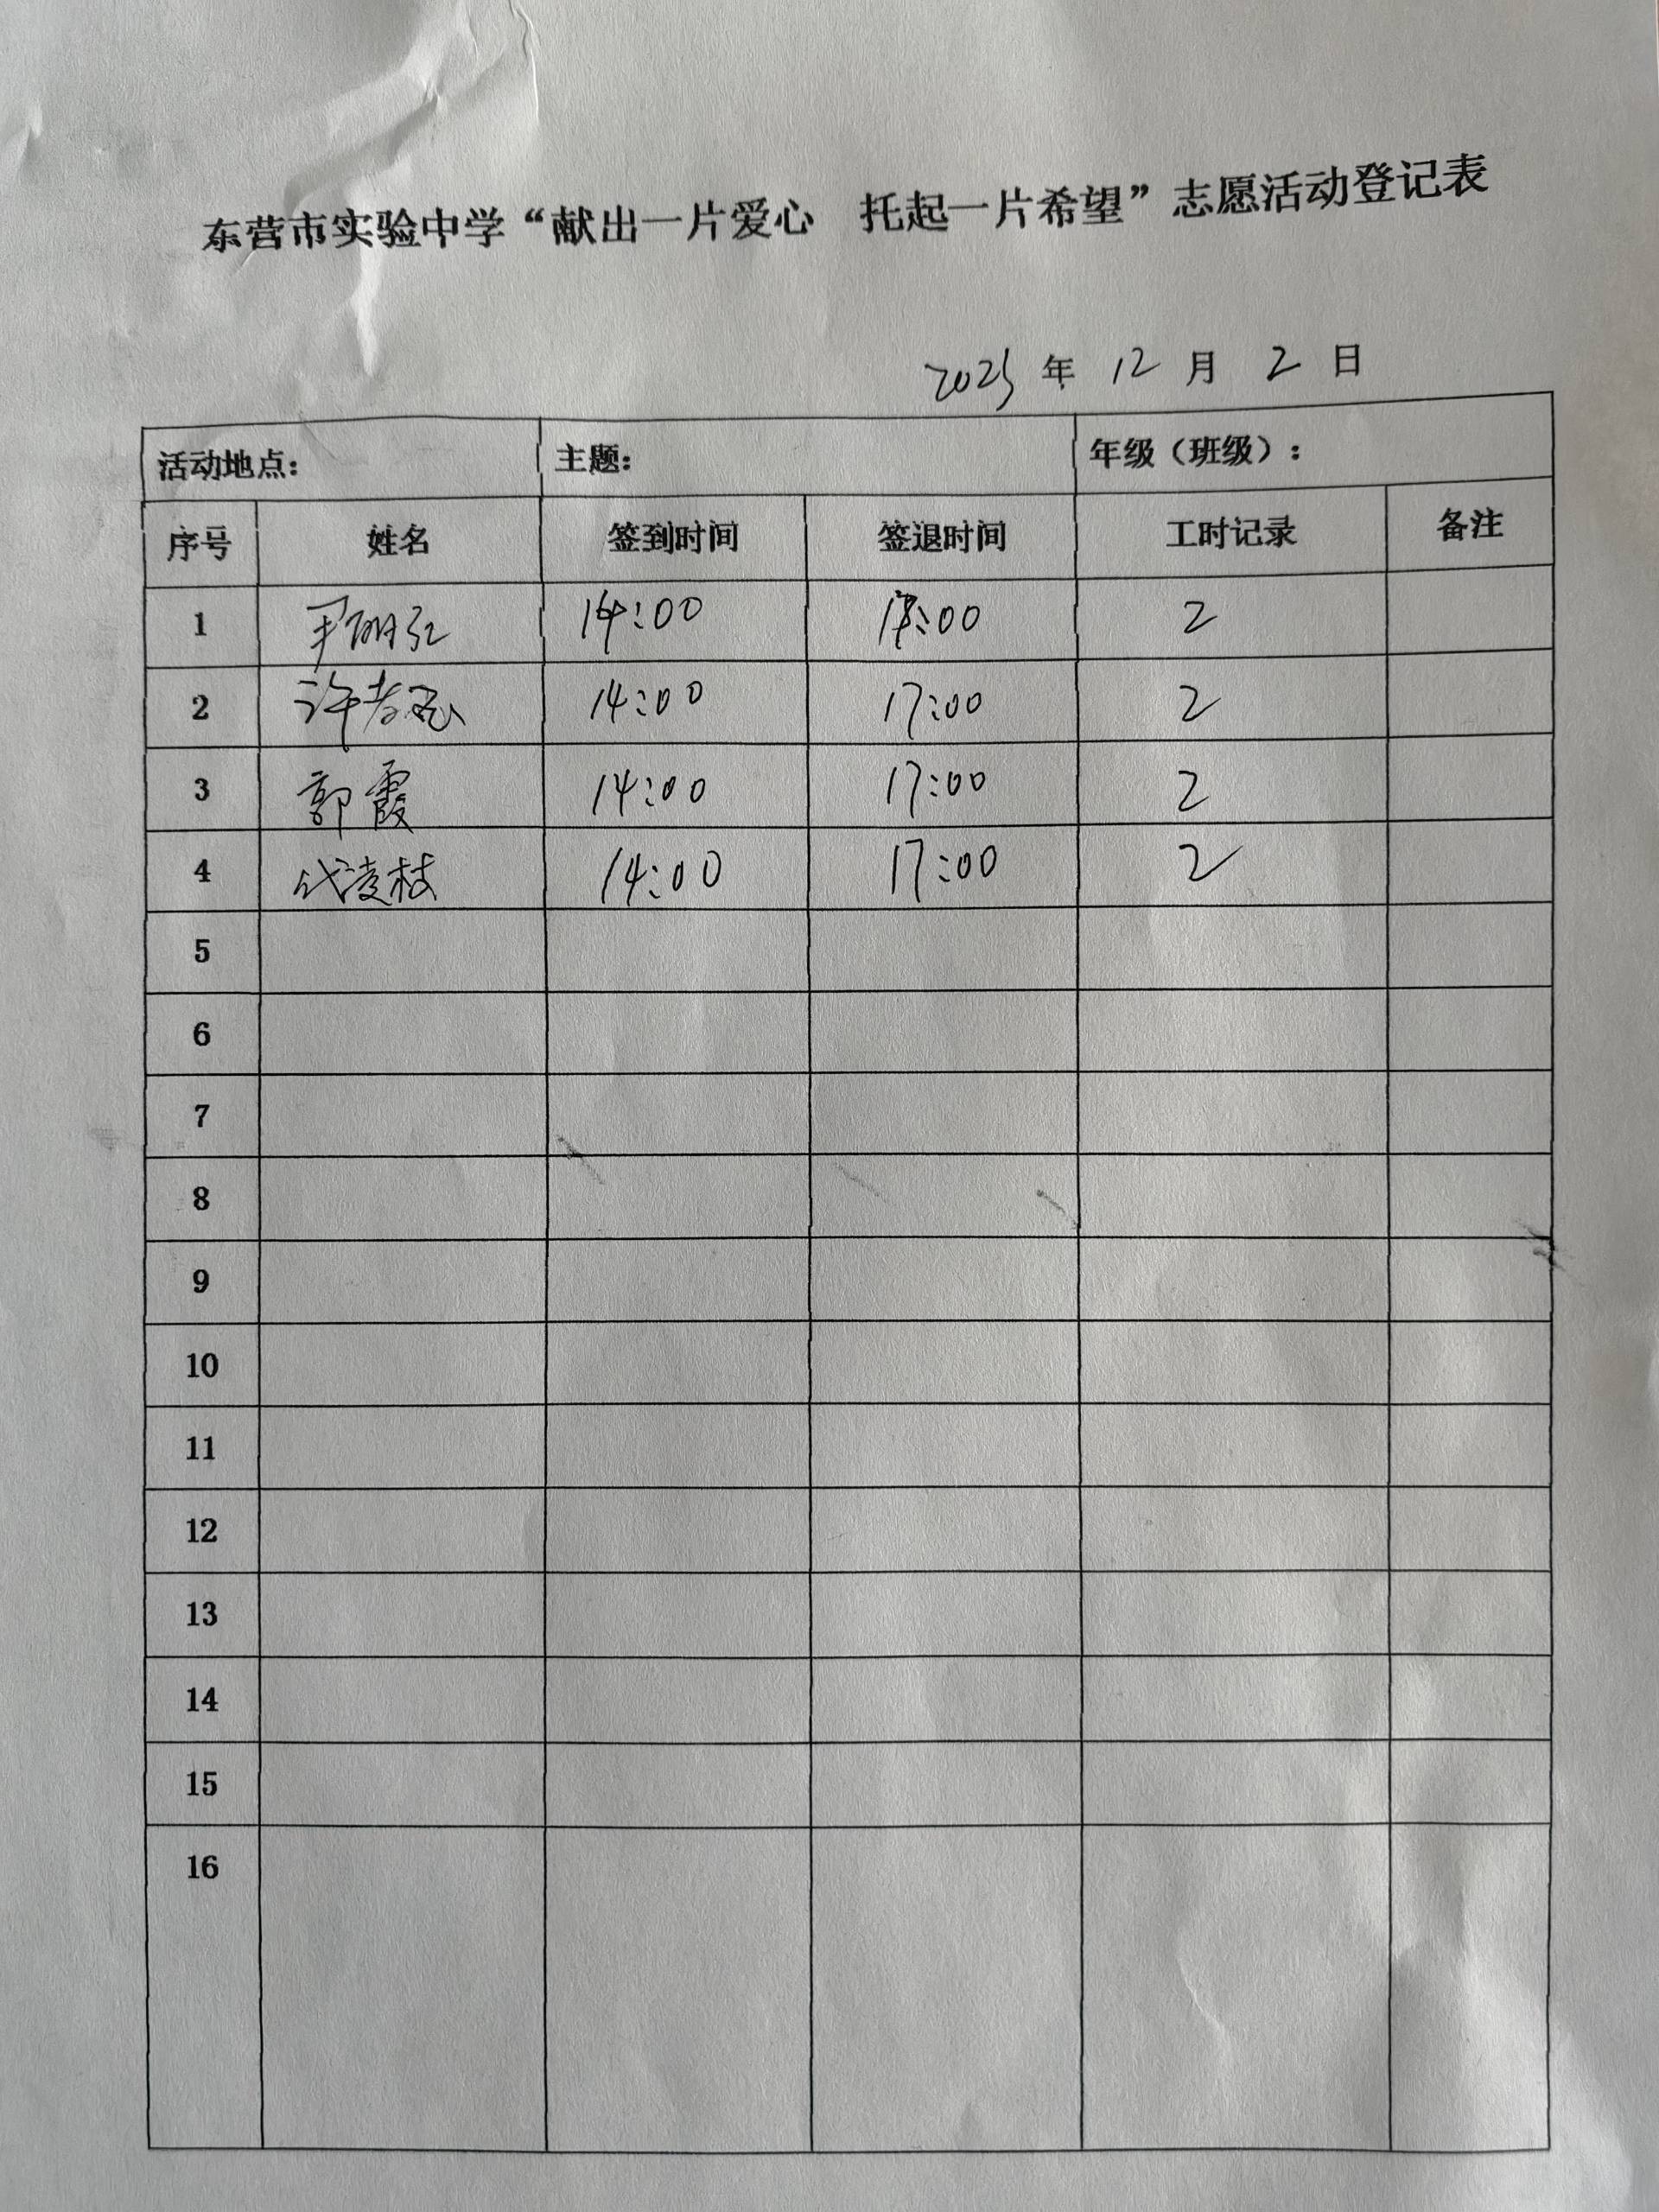 东营市实验中学“献出一片爱心 托起一片希望”志愿活动登记表
2025 年 12 月 2 日
活动地点: 主题: 年级（班级）:
序号 姓名 签到时间 签退时间 工时记录 备注
1 14:00 17:00 2
2 许孝 14:00 17:00 2
3 郭霞 14:00 17:00 2
4 代凌枝 14:00 17:00 2
5
6
7
8
9
10
11
12
13
14
15
16